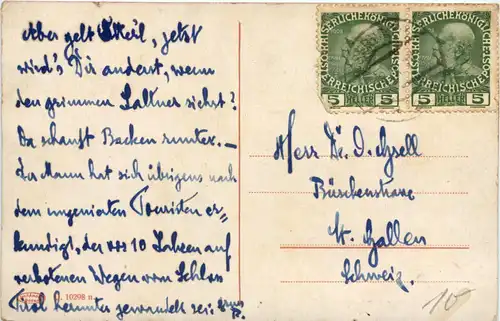 Aber gelt Keil, jetzt
wird's Dir anderst, wenn
den grimmen Saltner siehst?
Da schaust Backen runter. —
Der Mann hat sich übrigens nach
dem ungenierten Touristen er=
kundigt, der vor 10 Jahren auf
verbotenen Wegen vom Schloss
Tirol herunter gewandelt sei.
10298
KAISERLICHE KÖNIGLICHE
ÖSTERREICHISCHE POST
5 HELLER 5
KAISERLICHE KÖNIGLICHE
ÖSTERREICHISCHE POST
5 HELLER 5
Herr Dr. O. Gsell
St. Gallen
Schweiz.
10